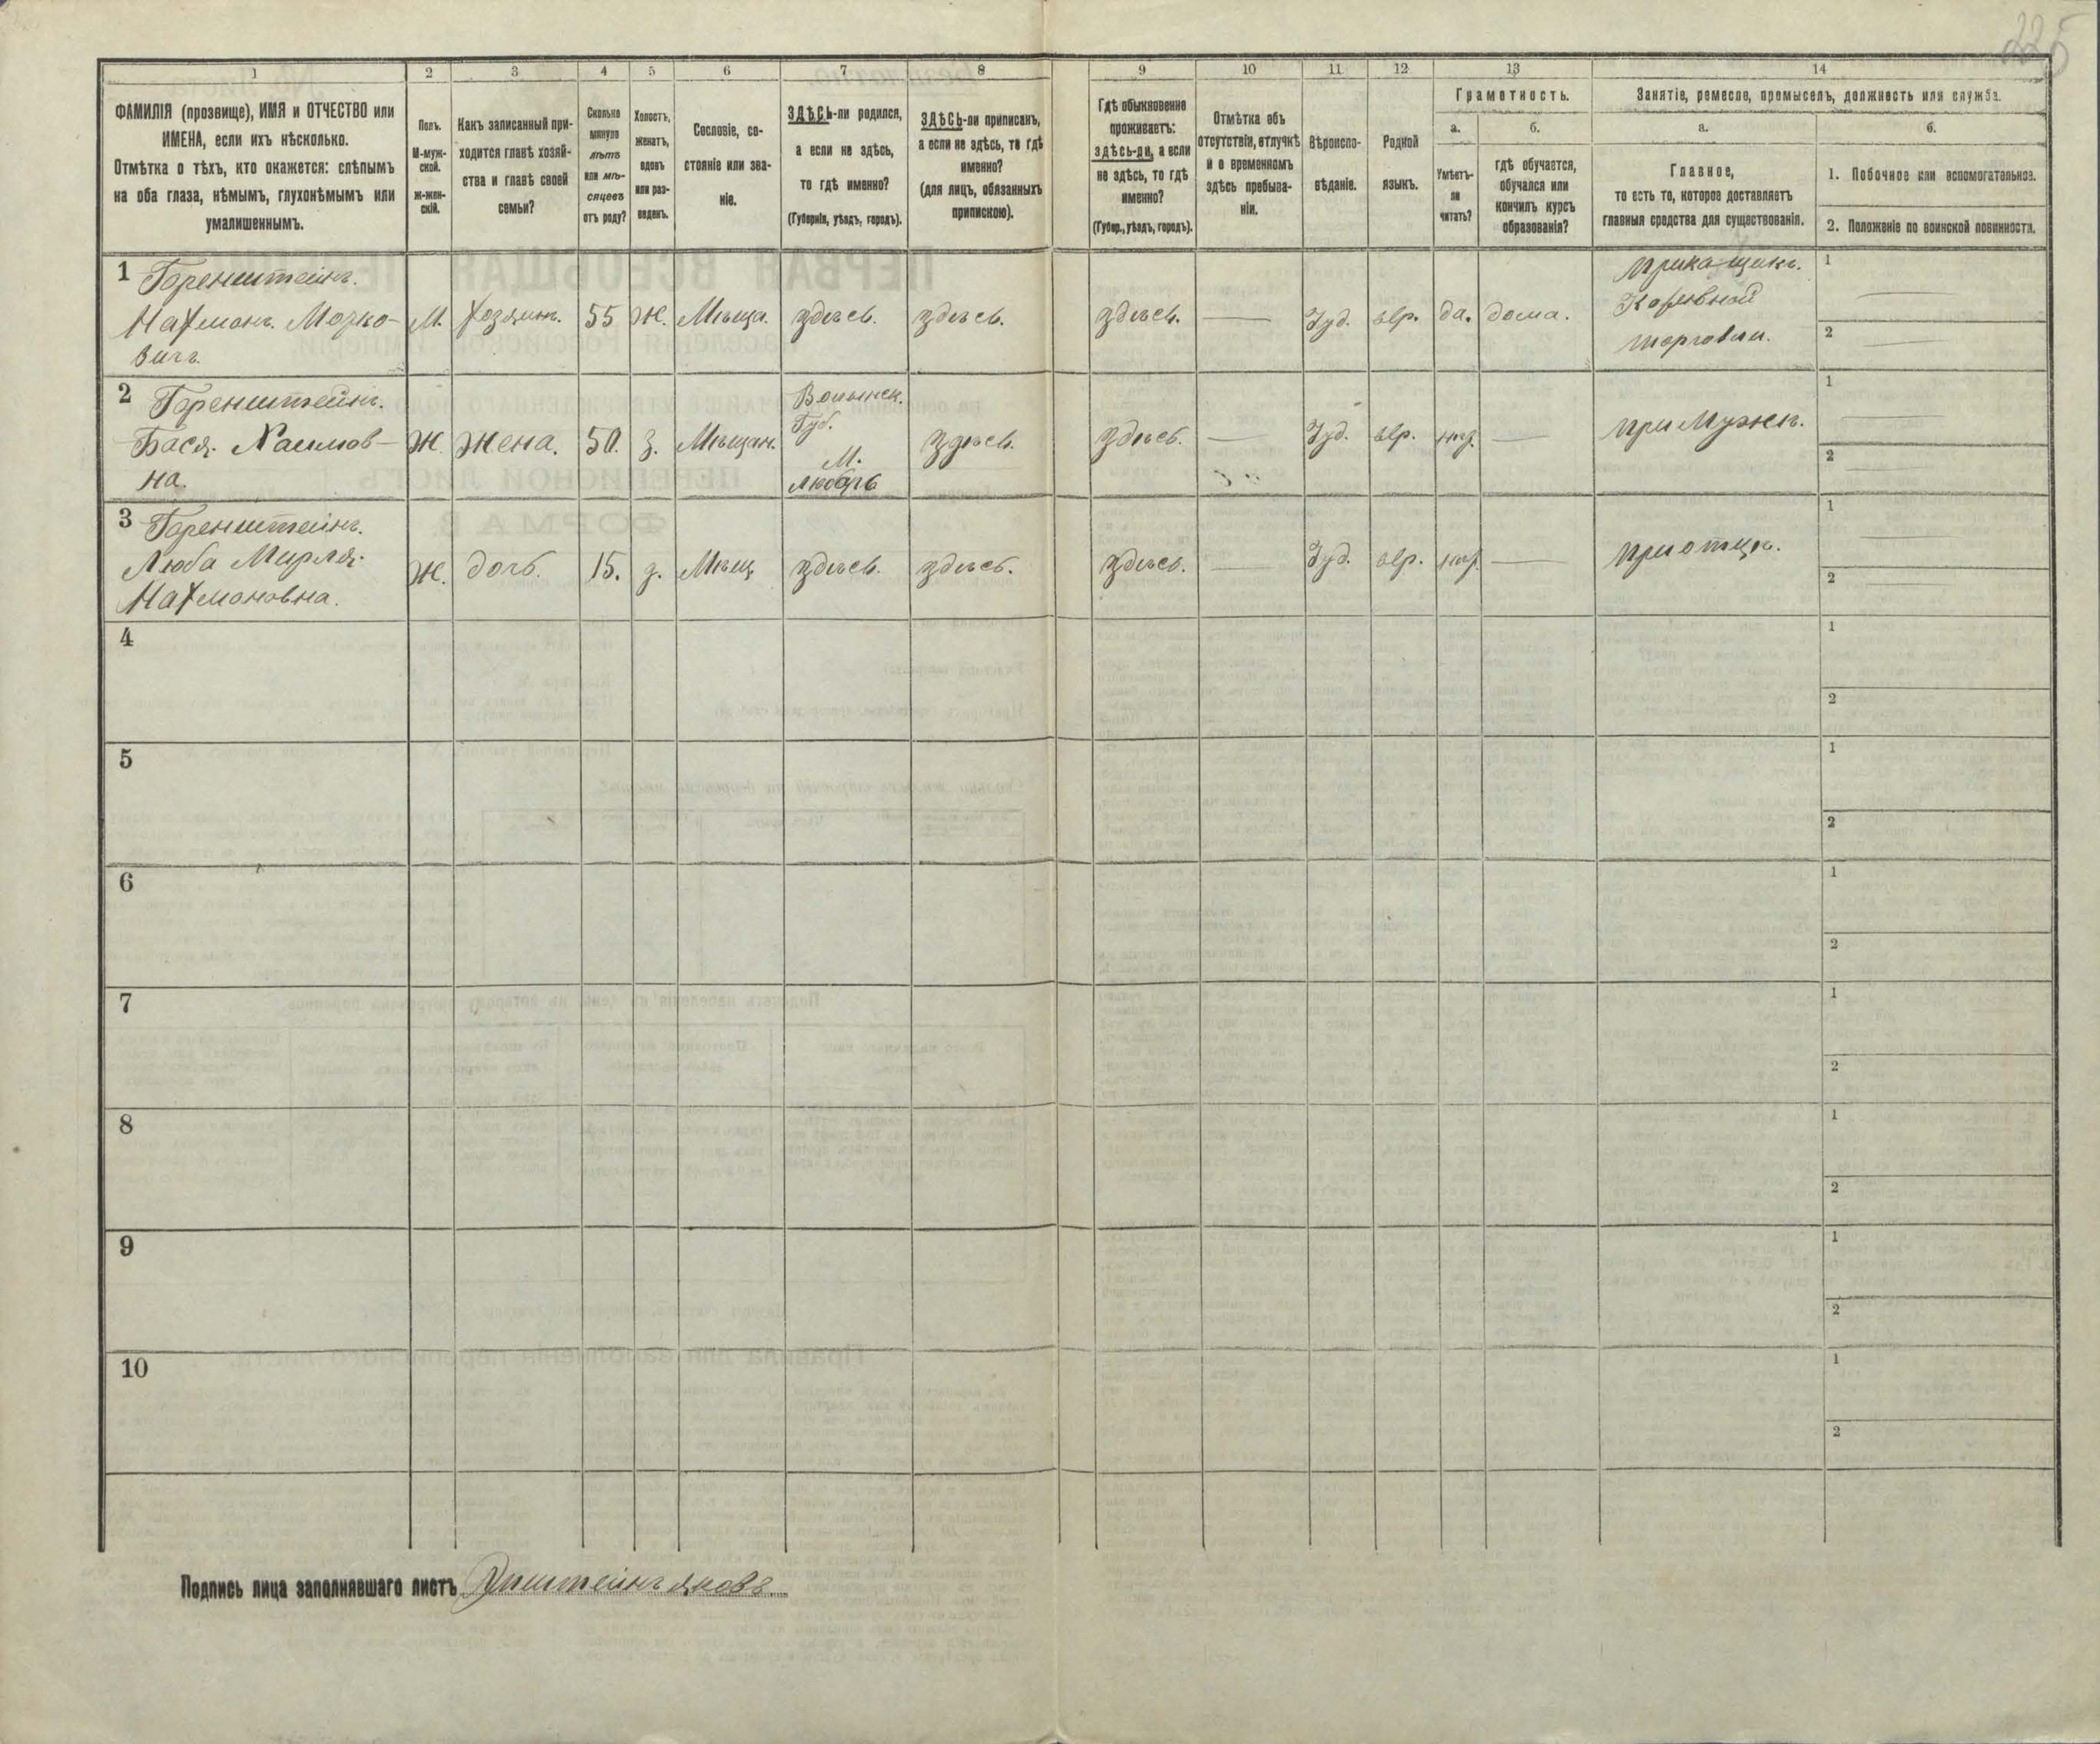 225
1
2
3
4
5
6
7
8
9
10
11
12
13
14
ФАМИЛІЯ (прозвище), ИМЯ и ОТЧЕСТВО или
ИМЕНА, если ихъ нѣсколько.
Отмѣтка о тѣхъ, кто окажется: слѣпымъ
на оба глаза, нѣмымъ, глухонѣмымъ или
умалишеннымъ.
Полъ.
М-муж-
ской.
ж-жен-
скій.
Какъ записанный при-
ходится главѣ хозяй-
ства и главѣ своей
семьи?
Сколько
минуло
лѣтъ
или мѣ-
сяцевъ
отъ роду?
Холостъ,
женатъ,
вдовъ
или раз-
веденъ.
Сословіе, со-
стояніе или зва-
ніе.
ЗДѢСЬ-ли родился,
а если не здѣсь,
то гдѣ именно?
(Губернія, уѣздъ, городъ).
ЗДѢСЬ-ли приписанъ,
а если не здѣсь, то гдѣ
именно?
(для лицъ, обязанныхъ
припискою).
Гдѣ обыкновенно
проживаетъ:
здѣсь-ли, а если
не здѣсь, то гдѣ
именно?
(Губер., уѣздъ, городъ).
Отмѣтка объ
отсутствіи, отлучкѣ
и о временномъ
здѣсь пребыва-
ніи.
Вѣроиспо-
вѣданіе.
Родной
языкъ.
Грамотность.
а.
Умѣетъ-
ли
читать?
б.
гдѣ обучается,
обучался или
кончилъ курсъ
образованія?
Занятіе, ремесло, промыселъ, должность или служба.
а.
Главное,
то есть то, которое доставляетъ
главныя средства для существованія.
б.
1. Побочное или вспомогательное.
2. Положеніе по воинской повинности.
1 Горенштейнъ.
Нахманъ. Мошко-
вичъ.
М.
Хозяинъ.
55
Ж.
Мѣща.
здѣсь.
здѣсь.
здѣсь.
Іуд.
евр.
да.
дома.
Прикащикъ.
торговли.
1
2
2 Горенштейнъ.
Бася. Хаимов-
на.
Ж.
Жена.
50.
З.
Мѣщан.
Волынск.
Губ.
М.
Любаръ
здѣсь.
здѣсь.
Іуд.
евр.
нѣт.
при Мужѣ.
1
2
3 Горенштейнъ.
Люба Мирля.
Нахмановна.
Ж.
дочь.
15.
д.
Мѣщ.
здѣсь.
здѣсь.
здѣсь.
Іуд.
евр.
нѣт.
при отцѣ.
1
2
4
1
2
5
1
2
6
1
2
7
1
2
8
1
2
9
1
2
10
1
2
Подпись лица заполнявшаго листъ Эпштейнъ Яковъ